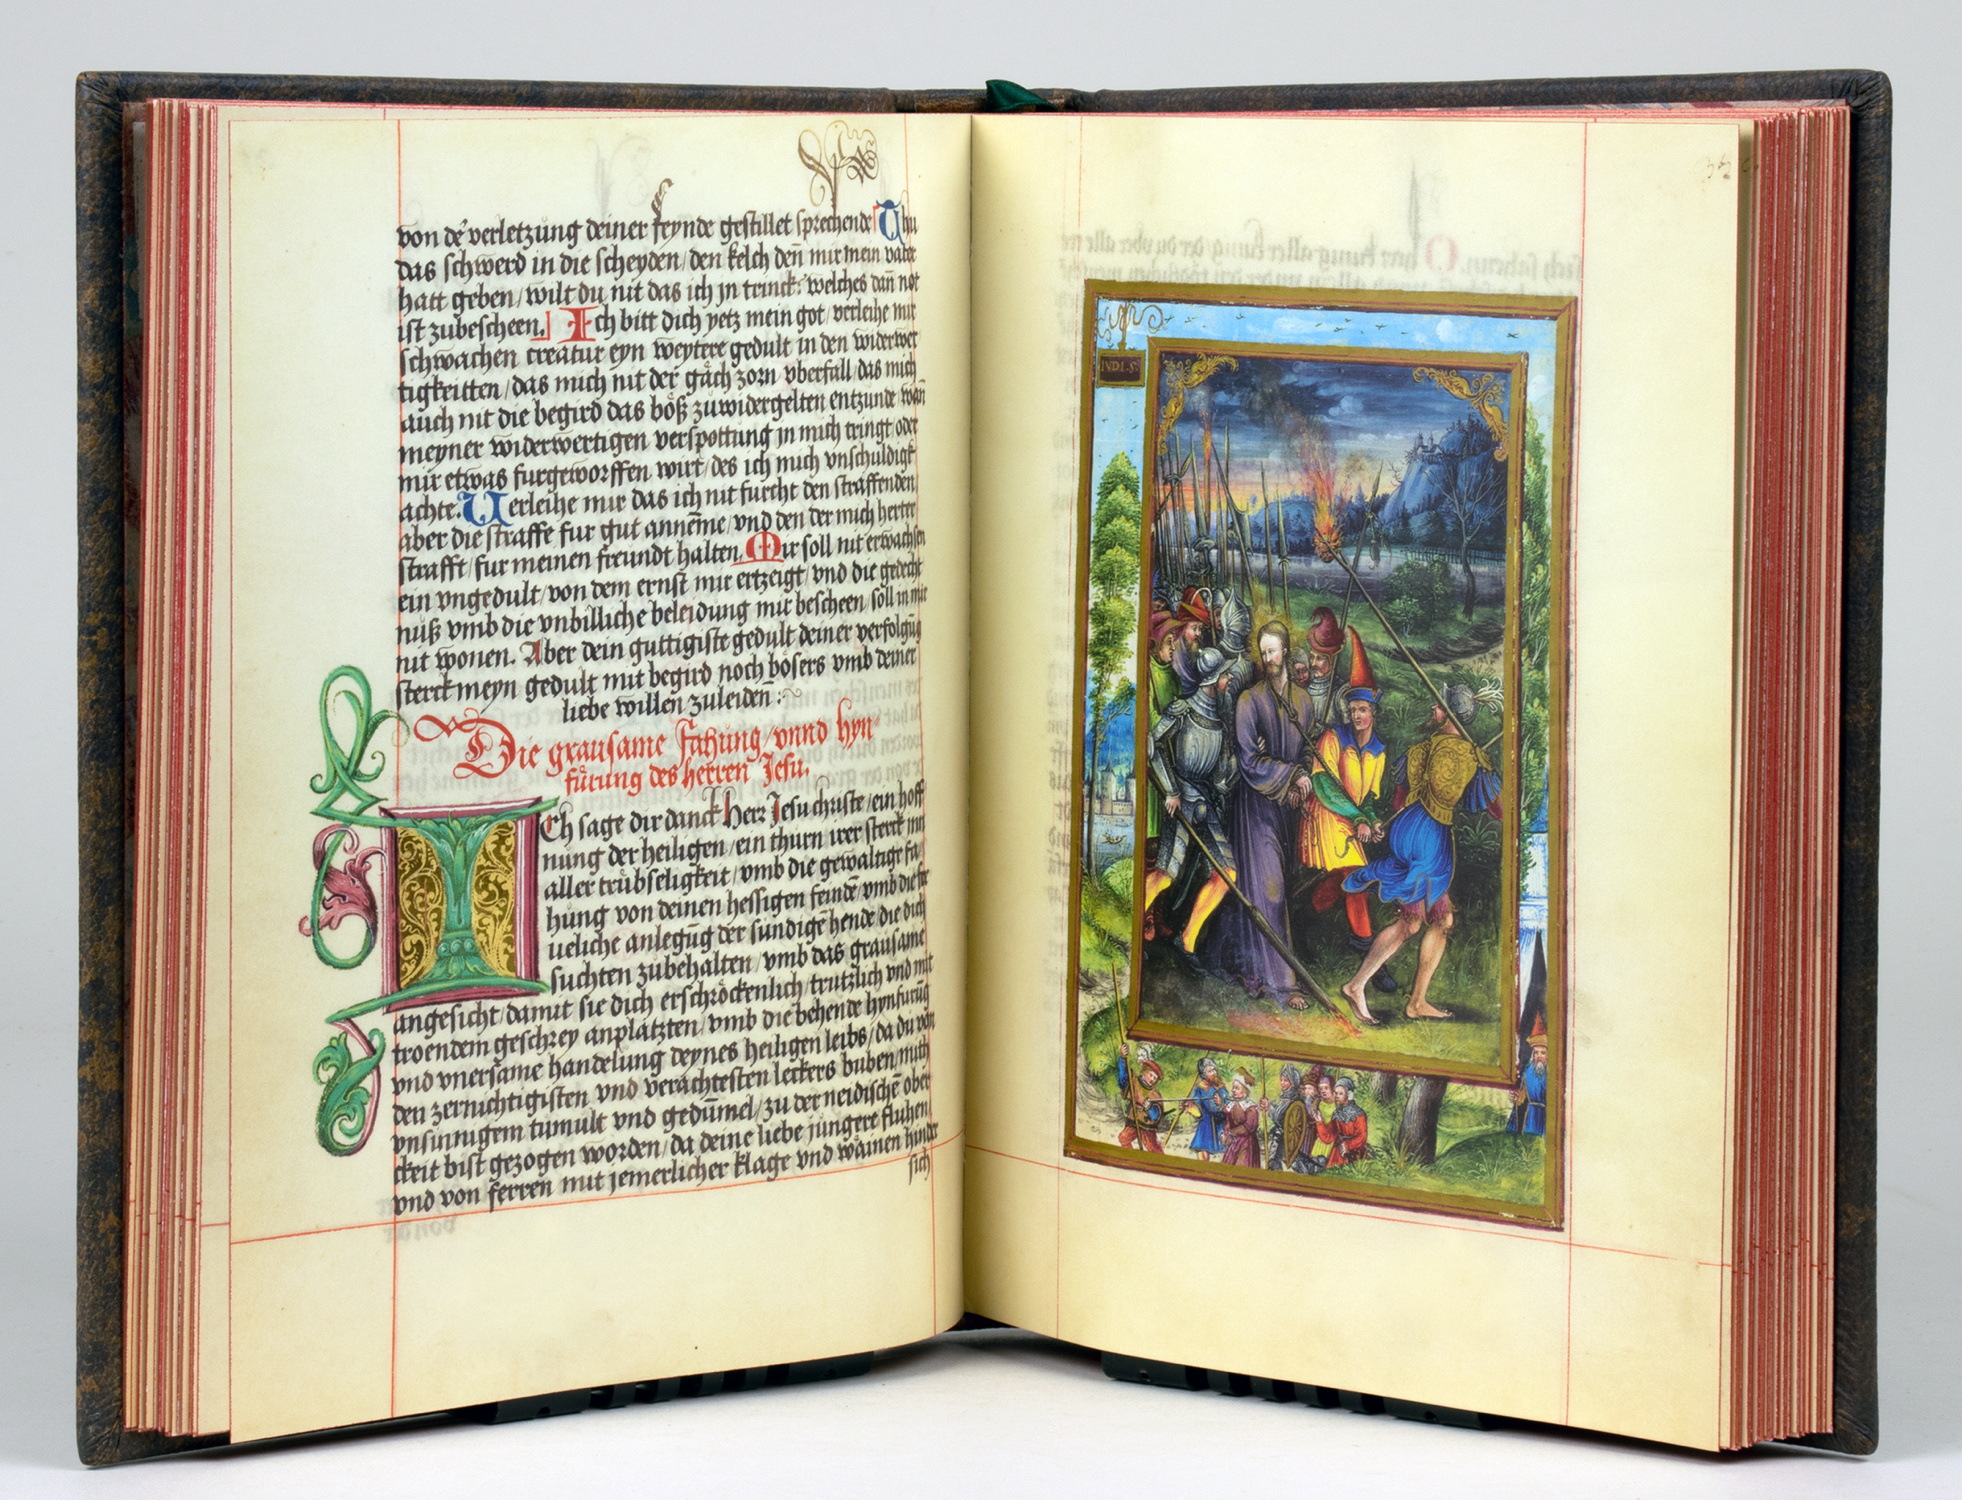 von dē verletzung deiner feynde gestillet sprechende Thu
das schwerd in die scheyden/den kelch den̄ mir mein vater
hatt geben/wilt du nit das ich jn trinck: welches dan̄ not
ist zubescheen. Ich bitt dich yetz mein got/verleihe mir
schwachen creatur eyn weytere gedult in den widerwer
tigkeitten/das mich nit der gäch zorn vberfall/das mich
auch nit die begird das böß zuwidergelten entzunde wan̄
meyner widerwertigen verspottung jn mich tringt/oder
mir etwas furgeworffen wirt/des ich mich vnschuldigk
achte. Verleihe mir das ich nit furcht den straffenden
aber die straffe fur gut annēme/vnd den der mich herter
strafft/fur meinen freundt halten. Mir soll nit erwachsen
ein vngedult/von dem ernst mir ertzeigt/vnd die gedecht
nuß vmb die vnbilliche beleidung mir bescheen/soll in mir
nit wonen. Aber dein guttigiste gedult deiner verfolgūg
sterck meyn gedult mit begird noch bösers vmb deiner
liebe willen zuleiden:~
Die grausame fahung/vnnd hyn-
fürung des herren Jesu.
ICh sage dir danck Herr Jesu christe/ein hoff
nung der heiligen/ein thurn irer sterck inn
aller trübseligkeit/vmb die gewaltige fa-
hung von deinen hessigen feindē vmb die fre
ueliche anlegūg der sundigē hende/die dich
suchten zubehalten/vmb das grausame
angesicht/damit sie dich erschröckenlich/trutzlich vnd mit
troendem geschrey anplatzten/vmb die behende hynfurūg
vnd vnersame handelung deynes heiligen leibs/da du von
den zernichtigisten vnd verachtesten leckers buben/mith
vnsinnigem tumult vnd gedūmel/zu der neidischē ober
ckeit bist gezogen worden/da deine liebe jüngere fluhen
vnd von ferren mit jemerlicher klage vnd wäinen hinder
sich